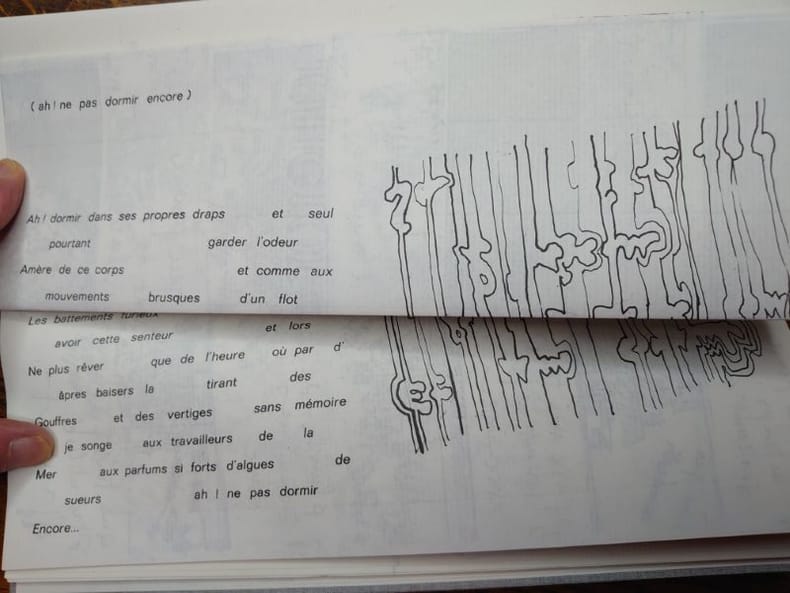 ( ah ! ne pas dormir encore )
Ah ! dormir dans ses propres draps et seul
pourtant garder l'odeur
Amère de ce corps et comme aux
mouvements brusques d'un flot
Les battements furieux
avoir cette senteur et lors
Ne plus rêver que de l'heure où par d'
âpres baisers la tirant des
Gouffres et des vertiges sans mémoire
je songe aux travailleurs de la
Mer aux parfums si forts d'algues de
sueurs ah ! ne pas dormir
Encore...